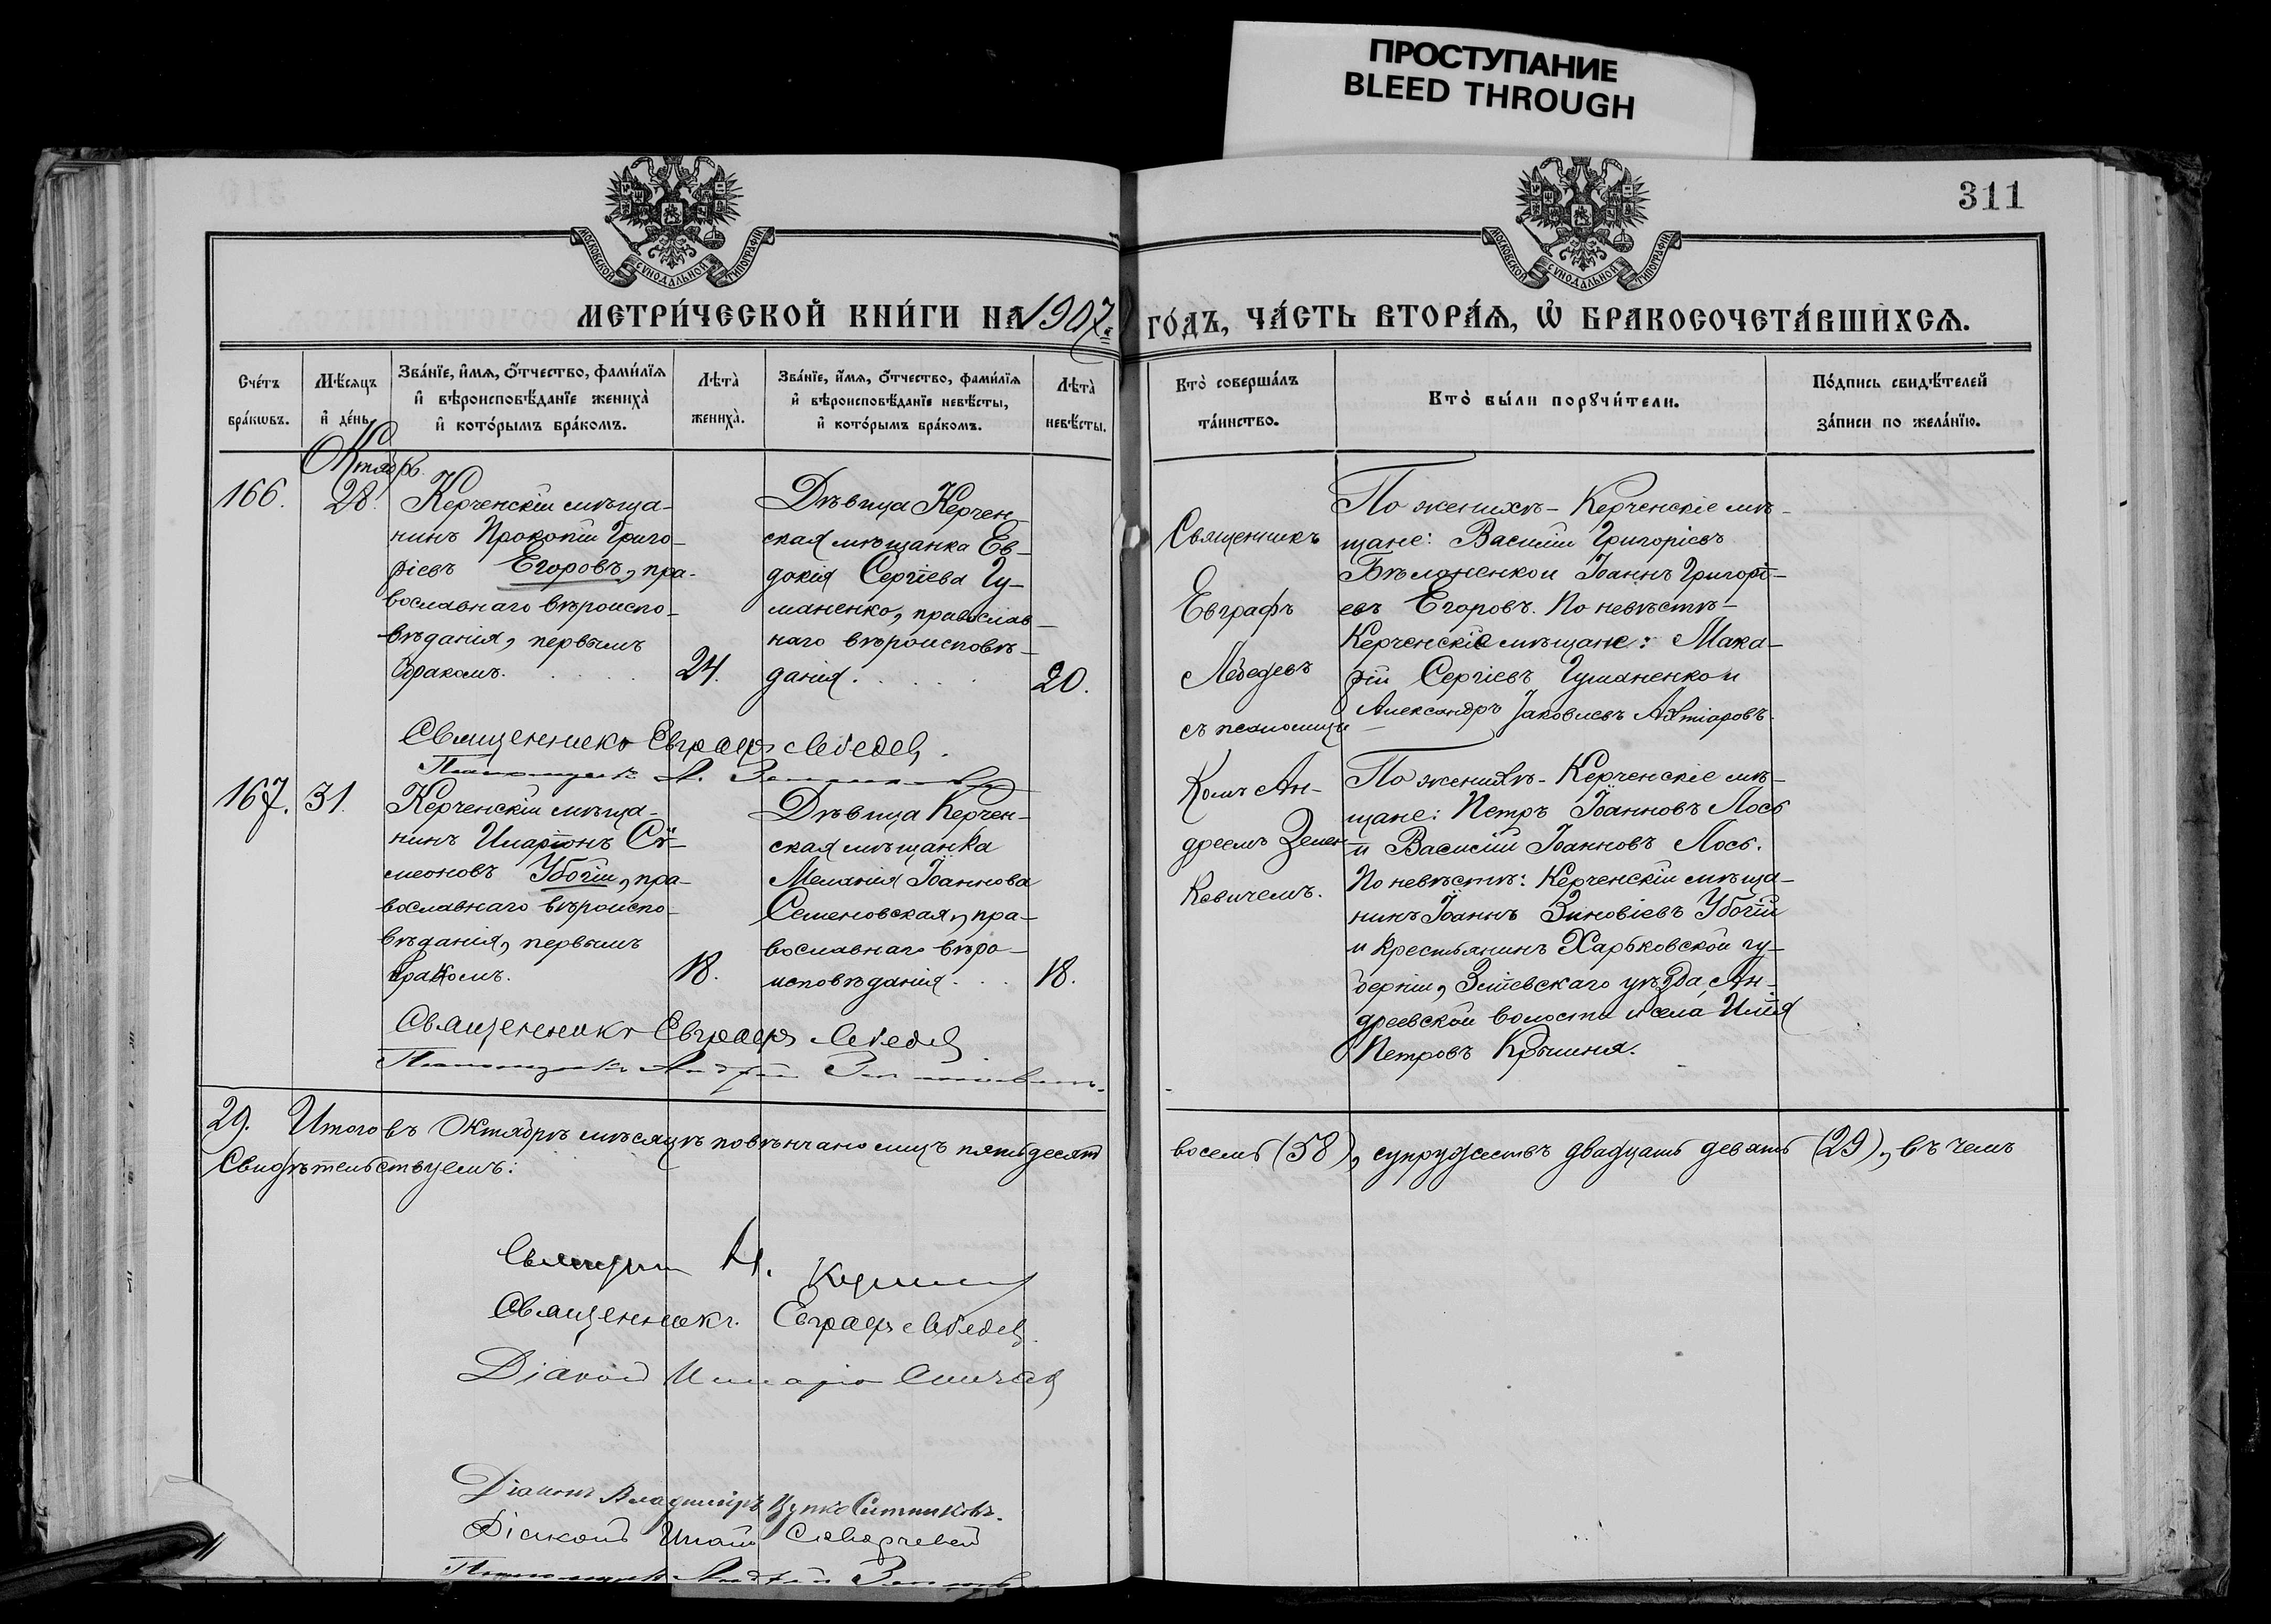 ПРОСТУПАНИЕ
BLEED THROUGH
311
МОСКОВСКОЙ СУНОДАЛЬНОЙ ТИПОГРАФІИ
МОСКОВСКОЙ СУНОДАЛЬНОЙ ТИПОГРАФІИ
МЕТРИ́ЧЕСКОЙ КНИ́ГИ НА 1907 ГО́ДЪ, ЧА́СТЬ ВТОРА́Я, Ѡ БРАКОСОЧЕТА́ВШИХСЯ.
Сче́тъ
бра́кѡвъ.
Мѣ́сяцъ
и де́нь.
Зва́нїе, и́мя, ѻ́тчество, фами́лїя
и вѣроисповѣ́данїе жениха̀
и кото́рымъ бра́комъ.
Лѣта̀
жениха̀.
Зва́нїе, и́мя, ѻ́тчество, фами́лїя
и вѣроисповѣ́данїе невѣ́сты,
и кото́рымъ бра́комъ.
Лѣта̀
невѣ́сты.
Кто̀ соверша́лъ
та́инство.
Кто̀ бы́ли порꙋчи́тели.
По́дпись свидѣ́телей
за́писи по жела́нїю.
Октябрь
166.
28.
Керченскій мѣща-
нинъ Прокопій Григо-
ріевъ Егоровъ, пра-
вославнаго вѣроиспо-
вѣданія, первымъ
бракомъ.
24.
Дѣвица Керчен-
ская мѣщанка Ев-
докія Сергіева Гу-
маненко, православ-
наго вѣроисповѣ-
данія.
20.
Священникъ
Евграфъ
Лебедевъ
съ псаломщи-
комъ Ан-
дреемъ Зелен-
кевичемъ.
По женихѣ - Керченскіе мѣ-
щане: Василій Григоріевъ
Бѣлоненко и Іоаннъ Григорі-
евъ Егоровъ. По невѣстѣ -
Керченскіе мѣщане: Мака-
рій Сергіевъ Гуманенко и
Александръ Іаковлевъ Ахтіаровъ.
Священникъ Евграфъ Лебедевъ.
Псаломщикъ А.
167.
31.
Керченскій мѣща-
нинъ Иларіонъ Сѵ-
меоновъ Убогій, пра-
вославнаго вѣроиспо-
вѣданія, первымъ
бракомъ.
18.
Дѣвица Керчен-
ская мѣщанка
Меланія Іоаннова
Семеновская, пра-
вославнаго вѣро-
исповѣданія.
18.
По женихѣ - Керченскіе мѣ-
щане: Петръ Іоанновъ Лось
и Василій Іоанновъ Лось.
По невѣстѣ: Керченскій мѣща-
нинъ Іоаннъ Зиновіевъ Убогій
и крестьянинъ Харьковской гу-
берніи, Зміевскаго уѣзда, Ан-
дреевской волости и села, Илія
Петровъ
Священникъ Евграфъ Лебедевъ
Псаломщикъ Андрей
29. Итого въ Октябрѣ мѣсяцѣ повѣнчано лицъ пятьдесятъ восемь (58), супружествъ двадцать девять (29), въ чемъ
Свидѣтельствуемъ:
Священникъ Евграфъ Лебедевъ.
Діаконъ
Діаконъ Владиміръ
Діаконъ
Псаломщикъ Андрей